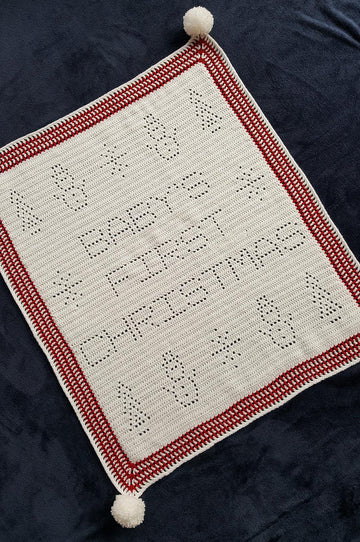 BABY'S
FIRST
CHRISTMAS